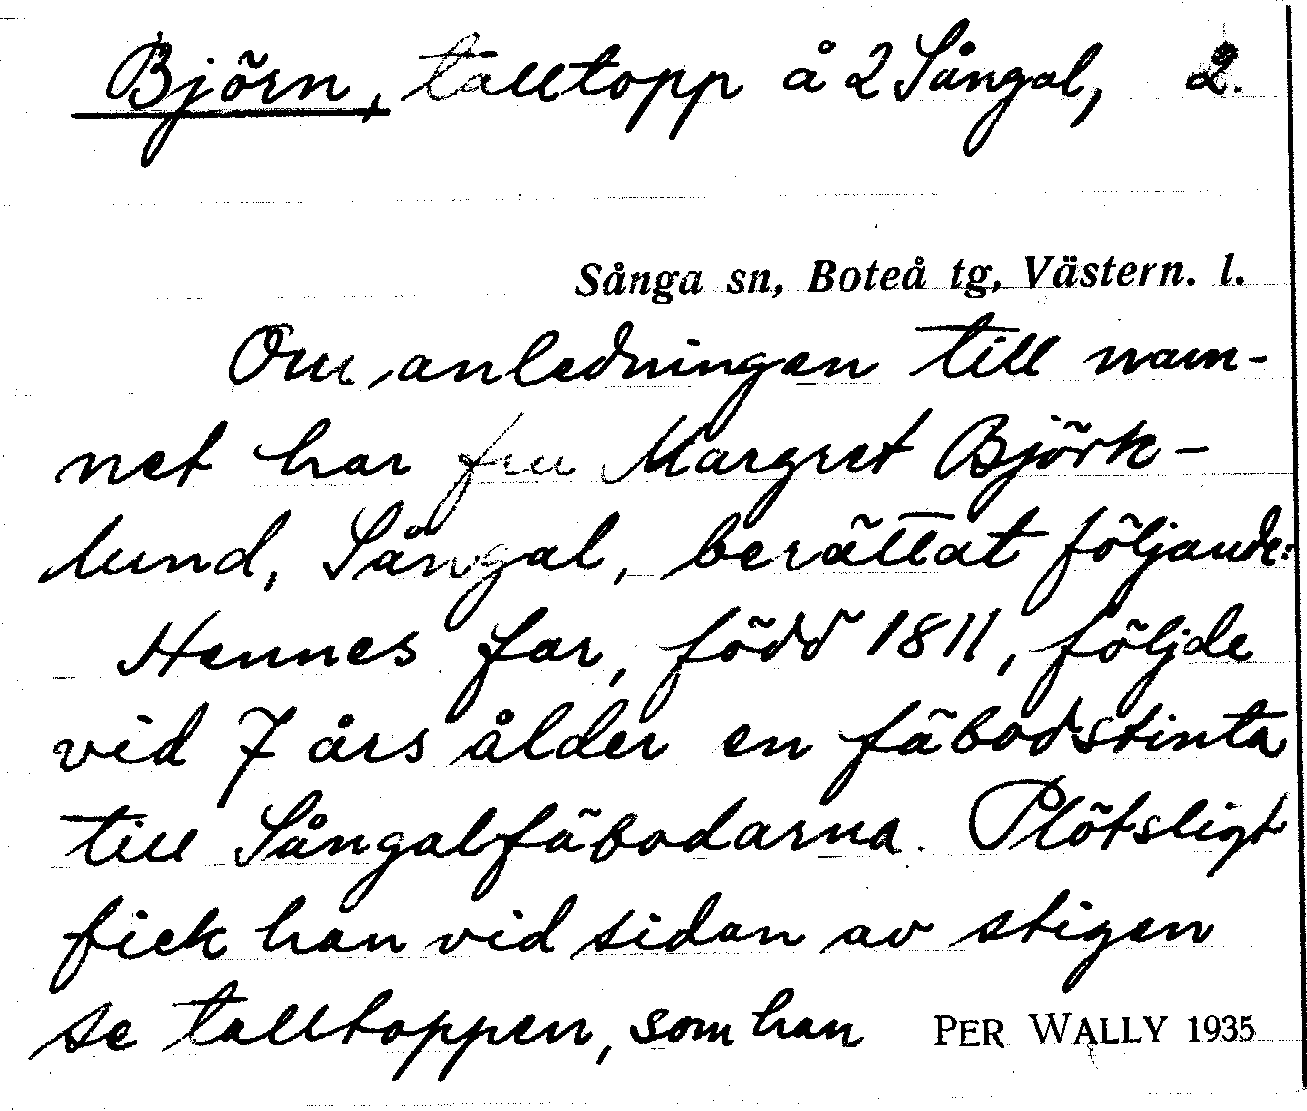 Björn, talltopp å 2 Sångal, 2.
Sånga sn, Boteå tg, Västern. l.
Om anledningen till nam-
net har fru Margret Björk-
lund, Sångal, berättat följande:
Hennes far, född 1811, följde
vid 7 års ålder en fäbodstinta
till Sångalfäbodarna. Plötsligt
fick han vid sidan av stigen
se talltoppen, som han
PER WALLY 1935